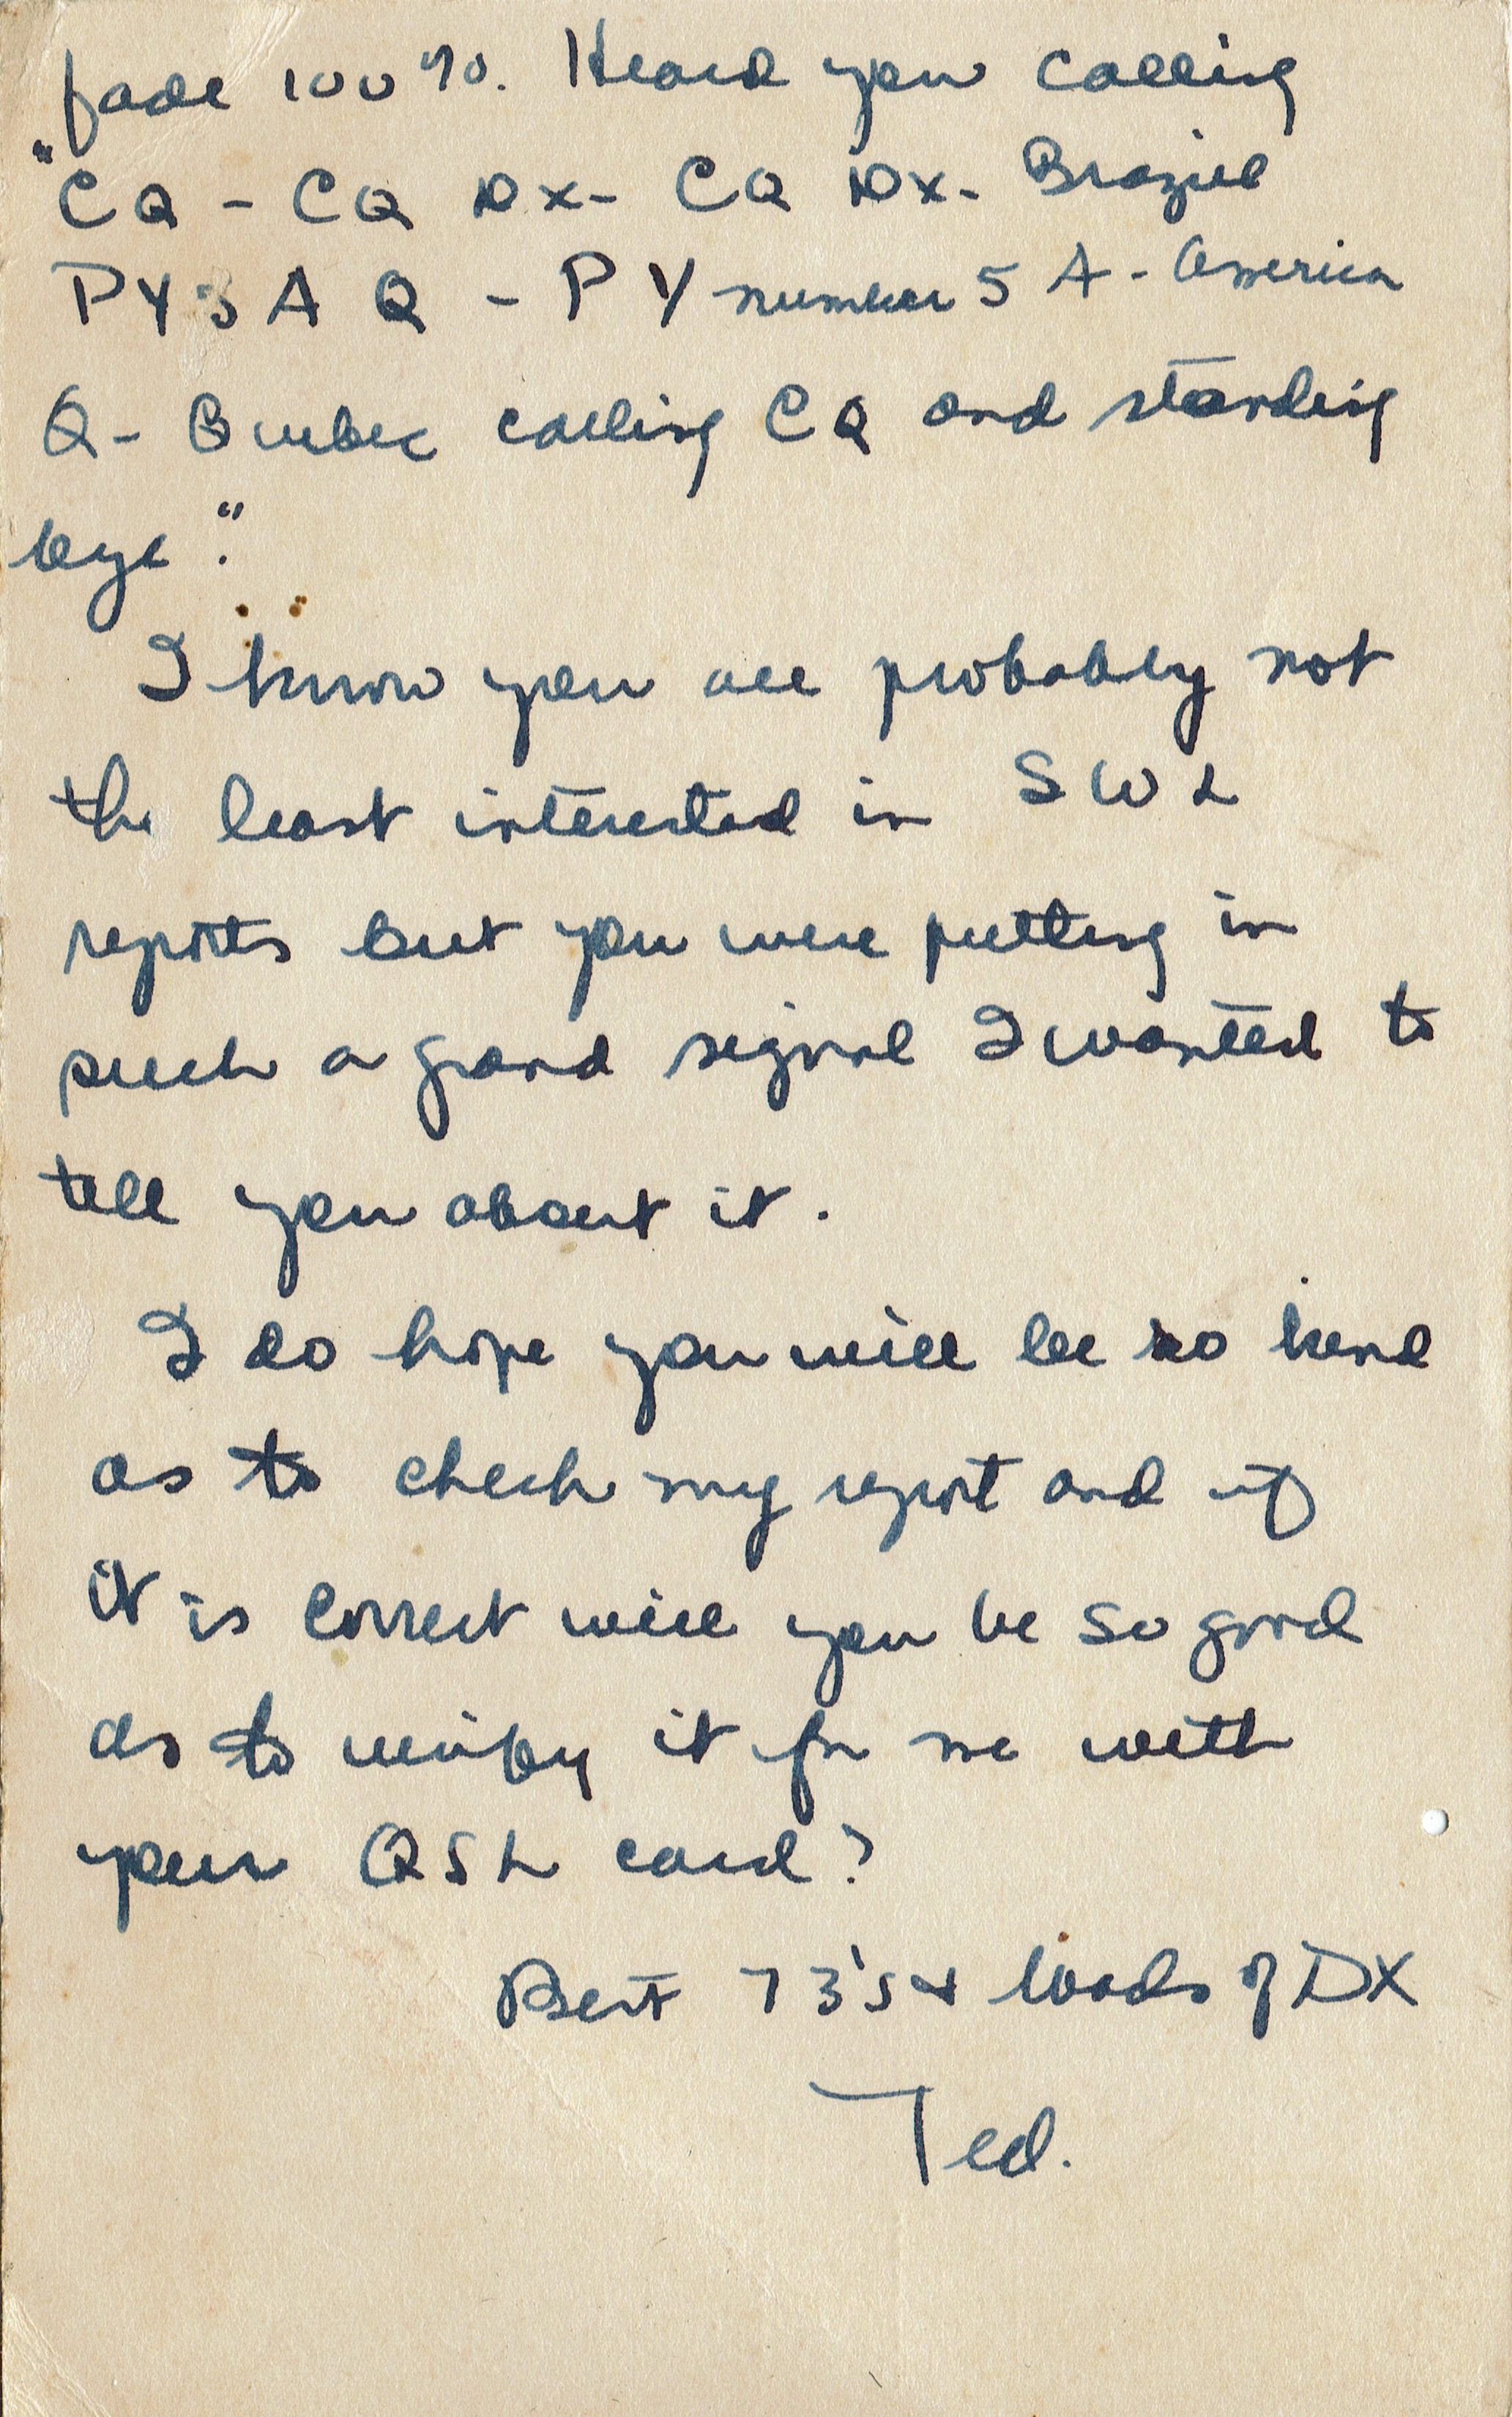 fade 100%. Heard you calling
"CQ - CQ DX - CQ DX - Brazil
PY5AQ - PY number 5 A - America
Q - Quebec calling CQ and standing
bye."
I know you are probably not
the least interested in SWL
reports but you were putting in
such a grand signal I wanted to
tell you about it.
I do hope you will be so kind
as to check my report and if
it is correct will you be so good
as to verify it for me with
your QSL card?
Best 73's & loads of DX
Ted.